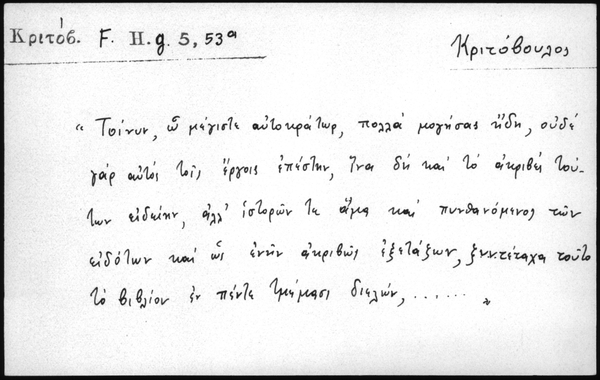 Κριτόβ. F. H. g. 5, 53ᵃ
Κριτόβουλος
“ Τοίνυν, ὦ μέγιστε αὐτοκράτωρ, πολλά μογήσας ἤδη, οὐδέ
γάρ αὐτός τοῖς ἔργοις ἐπέστην, ἵνα δή καί τὸ ἀκριβές τού-
των εἰδείην, ἀλλ’ ἱστορῶν τε ἅμα καί πυνθανόμενος τῶν
εἰδότων καί ὡς ἐνῆν ἀκριβῶς ἐξετάζων, ξυντέταχα τοῦτο
τὸ βιβλίον ἐν πέντε τμήμασι διελών, ...... ”